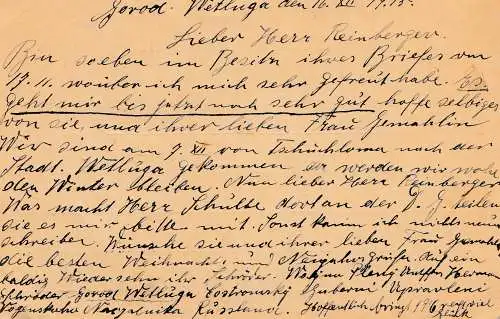 Gorod. Wetluga den 16. XII 1915.
Lieber Herr Reinberger.
Bin soeben im Besitz ihres Briefes vom
19.11. worüber ich mich sehr gefreut habe. Es
geht mir bis jetzt noch sehr gut hoffe selbiges
von sie, und ihrer lieben Frau Gemahlin
Wir sind am 9. XII von Tschuchloma nach der
Stadt. Wetluga gekommen da werden wir wohl
den Winter bleiben. Nun lieber Herr Reinberger
Was macht Herr Schulte dort an der teilen
sie es mir bitte mit. Sonst kann ich nichts neues
schreiben. Wünsche sie und ihrer lieben Frau Gemahlin
die besten Weihnacht und Neujahrs Grüße. Auf ein
baldig Wiedersehn ihr Schröder. Herman
Schröder Gorod Wetluga Costromsky Guberni Upravleni
Vojenskaho Natzalnika Russland. Hoffentlich bringt 1916